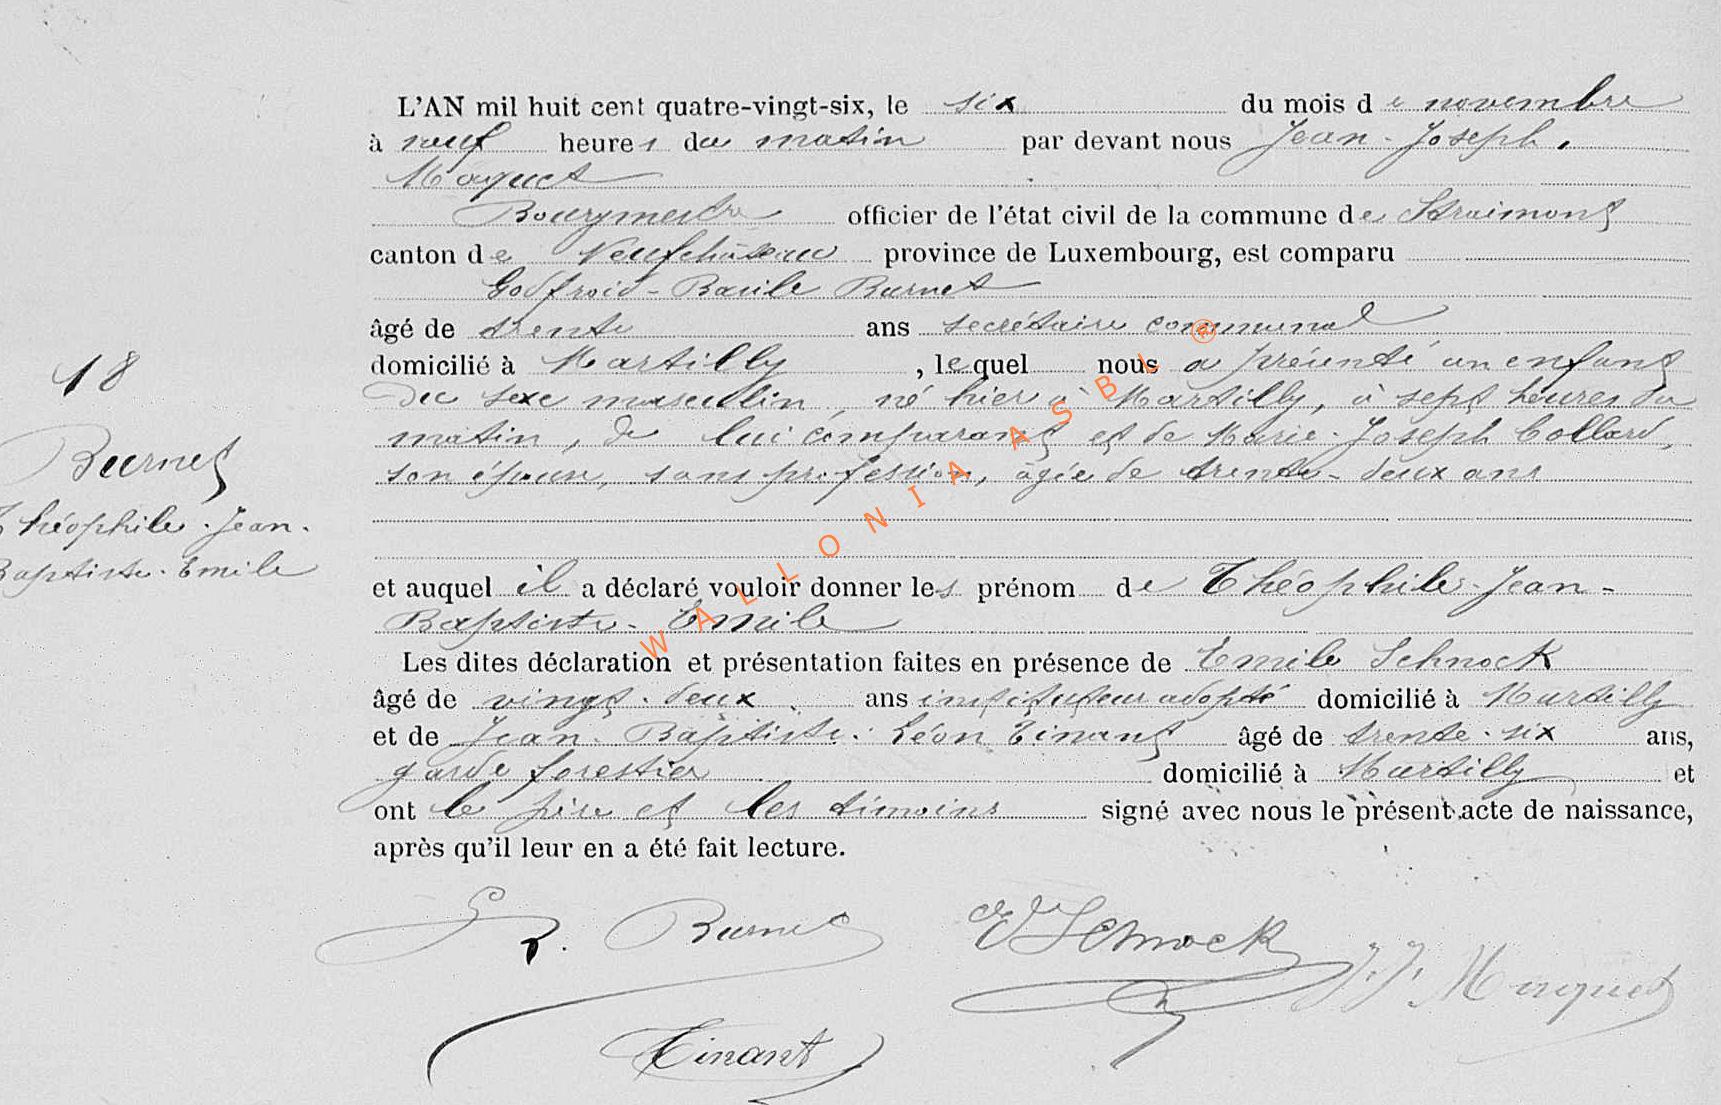 L'AN mil huit cent quatre-vingt-six, le six du mois de novembre
à neuf heures du matin par devant nous Jean-Joseph.
Maquet
Bourgmestre officier de l'état civil de la commune de Straimont
canton de Neufchâteau province de Luxembourg, est comparu
Godfroid-Basile Burnet
âgé de trente ans secrétaire communal
18
domicilié à Martilly, lequel nous a présenté un enfant
du sexe masculin, né hier à Martilly, à sept heures du
matin, de lui comparant et de Marie-Joseph Collard,
son épouse, sans profession, âgée de trente-deux ans
Burnet
Théophile-Jean-
Baptiste-Emile
et auquel il a déclaré vouloir donner les prénom de Théophile-Jean-
Baptiste-Emile
Les dites déclaration et présentation faites en présence de Emile Schnock
âgé de vingt-deux ans instituteur adopté domicilié à Martilly
et de Jean-Baptiste-Léon Tinant âgé de trente-six ans,
garde forestier domicilié à Martilly et
ont le père et les témoins signé avec nous le présent acte de naissance,
après qu'il leur en a été fait lecture.
G. B. Burnet
E Schnock
J. J. Maquet
Tinant
WALLONIA ASBL ®